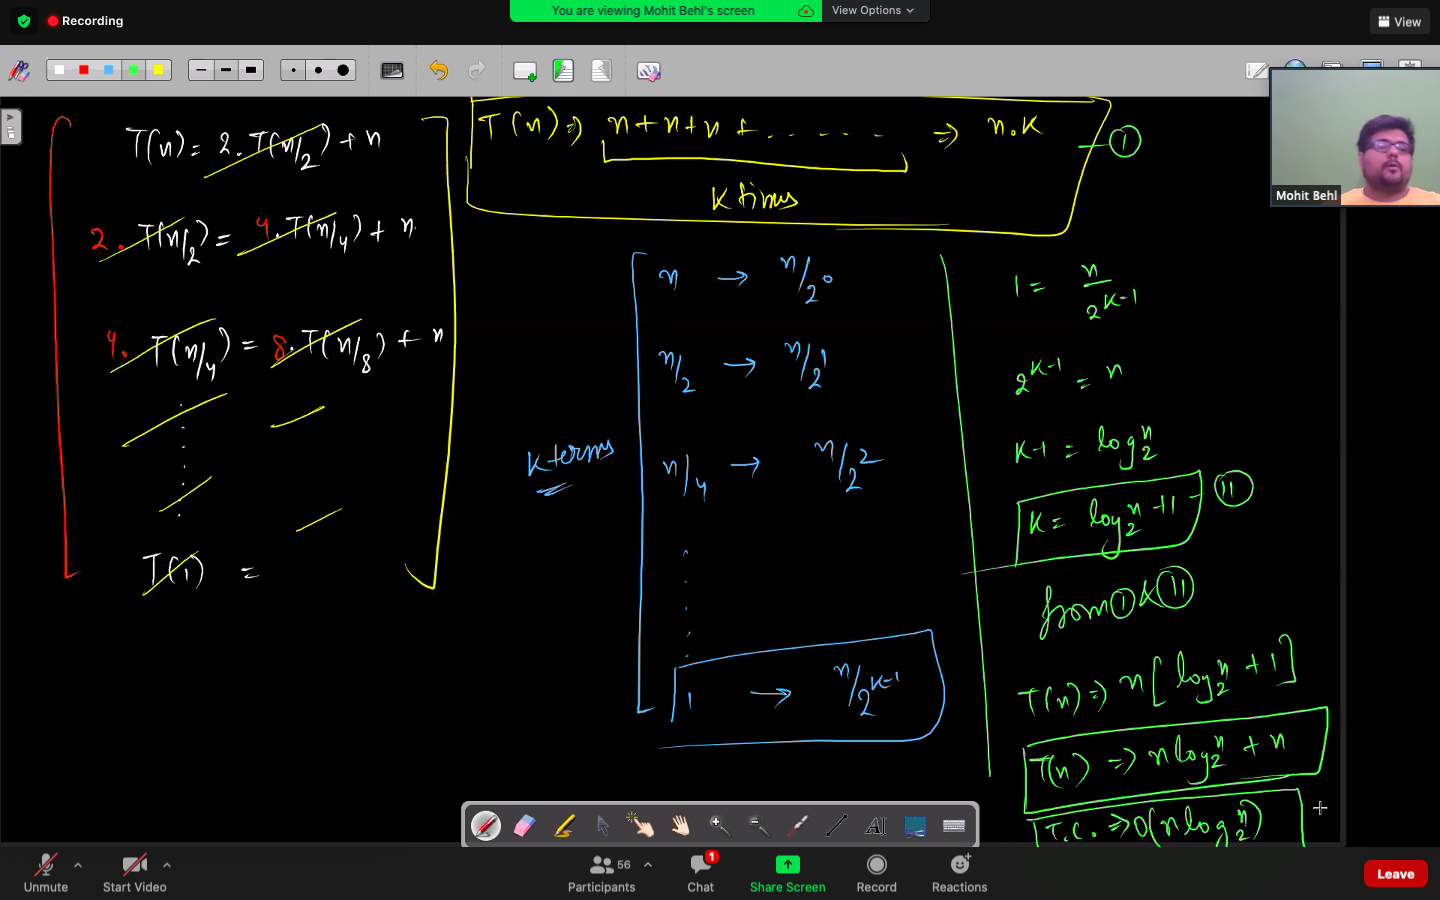 Recording
You are viewing Mohit Behl's screen
View Options
View
Mohit Behl
T(n) = 2. T(n/2) + n
2. T(n/2) = 4. T(n/4) + n
4. T(n/4) = 8. T(n/8) + n
T(1) =
T(n) ⇒ n+n+n + ...... ⇒ n.K
K times
I
K terms
n → n/2^0
n/2 → n/2^1
n/4 → n/2^2
1 → n/2^(K-1)
1 = n/2^(K-1)
2^(K-1) = n
K-1 = log_2 n
K = log_2 n + 1
II
from I & II
T(n) ⇒ n[log_2 n + 1]
T(n) ⇒ n log_2 n + n
T.C. ⇒ O(n log_2 n)
AI
Unmute
Start Video
56
Participants
1
Chat
Share Screen
Record
Reactions
Leave